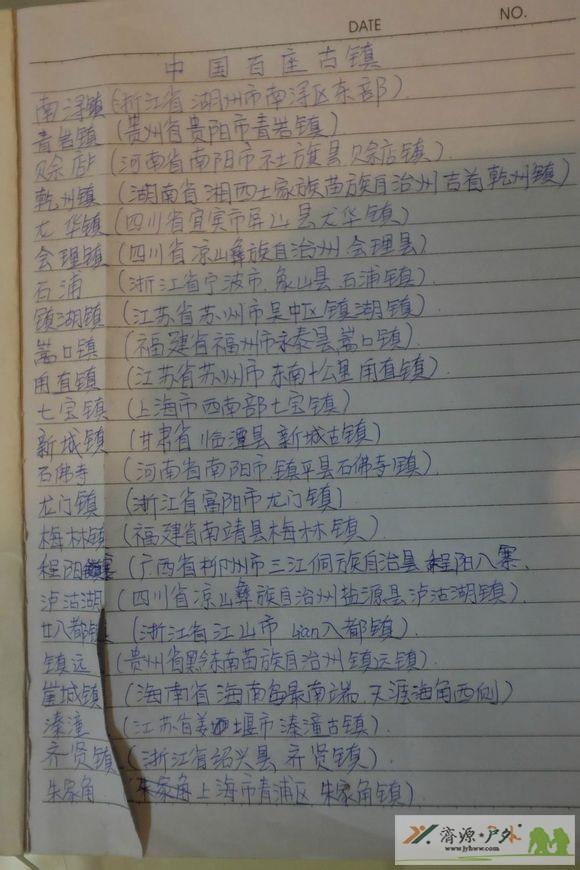 DATE
NO.
中国百座古镇
南浔镇(浙江省湖州市南浔区东部)
青岩镇(贵州省贵阳市青岩镇)
赊店(河南省南阳市社旗县赊店镇)
乾州镇(湖南省湘西土家族苗族自治州吉首乾州镇)
龙华镇(四川省宜宾市屏山县龙华镇)
会理镇(四川省凉山彝族自治州会理县)
石浦(浙江省宁波市.象山县石浦镇)
镇湖镇(江苏省苏州市吴中区镇湖镇)
嵩口镇(福建省福州市永泰县嵩口镇)
甪直镇(江苏省苏州市东南十八公里甪直镇)
七宝镇(上海市西南部七宝镇)
新城镇(甘肃省临潭县新城古镇)
石佛寺(河南省南阳市.镇平县石佛寺镇)
龙门镇(浙江省富阳市龙门镇)
梅林镇(福建省南靖县梅林镇)
程阳寨(广西省柳州市三江侗族自治县程阳八寨.
泸沽湖(四川省凉山彝族自治州盐源县泸沽湖镇)
廿八都镇(浙江省江山市lian八都镇)
镇远(贵州省黔东南苗族自治州镇远镇)
崖城镇(海南省海南岛最南端.天涯海角西侧)
溱潼(江苏省姜堰市溱潼古镇)
齐贤镇(浙江省绍兴县齐贤镇)
朱家角(朱家角上海市青浦区朱家角镇)
济源·户外
www.jyhww.com